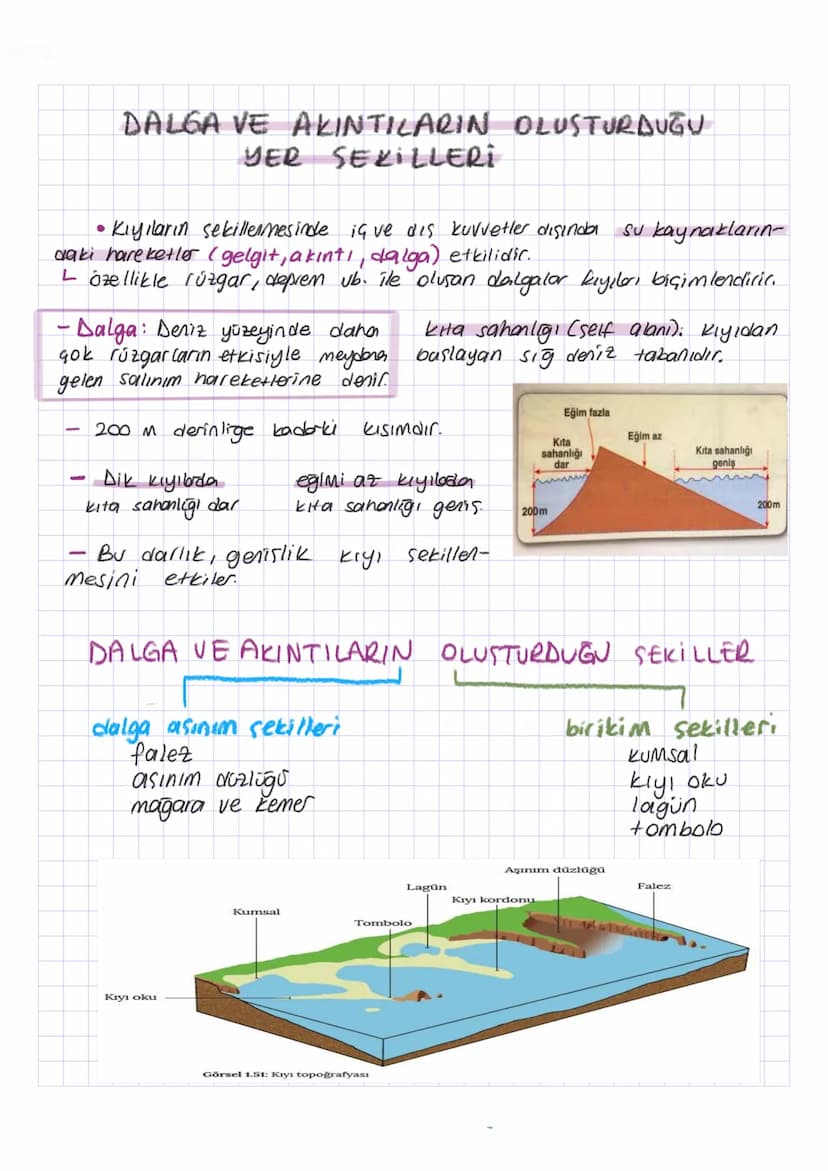 DALGA VE AKINTILARIN OLUSTURDUĞU
YER SEKİLLERİ
• Kıyıların şekillenmesinde iç ve dış kuvvetler dışında su kaynakların-
daki hareketler (gelgit, akıntı, dalga) etkilidir.
özellikle rüzgar, deprem vb. ile oluşan dalgalar kıyıları biçimlendirir.
- Dalga: Deniz yüzeyinde daha
çok rüzgarların etkisiyle meydana
gelen salınım hareketlerine denir.
kıta sahanlığı (şelf alanı): kıyıdan
başlayan sığ deniz tabanıdır.
- 200 m derinliğe kadarki kısımdır.
- Dik kıyılarda
kıta sahanlığı dar
eğimi az kıyılarda
kıta sahanlığı geniş.
- Bu darlık, genişlik kıyı şekillen-
mesini etkiler.
Eğim fazla
Eğim az
Kıta
sahanlığı
dar
Kıta sahanlığı
geniş
200m
200m
DALGA VE AKINTILARIN OLUSTURDUĞU SEKİLLER
dalga aşınım şekilleri
falez
aşınım düzlüğü
mağara ve kemer
birikim şekilleri
kumsal
kıyı oku
lagün
tombolo
Aşınım düzlüğü
Lagün
Falez
Kıyı kordonu
Kumsal
Tombolo
Kıyı oku
Görsel 1.51: Kıyı topoğrafyası